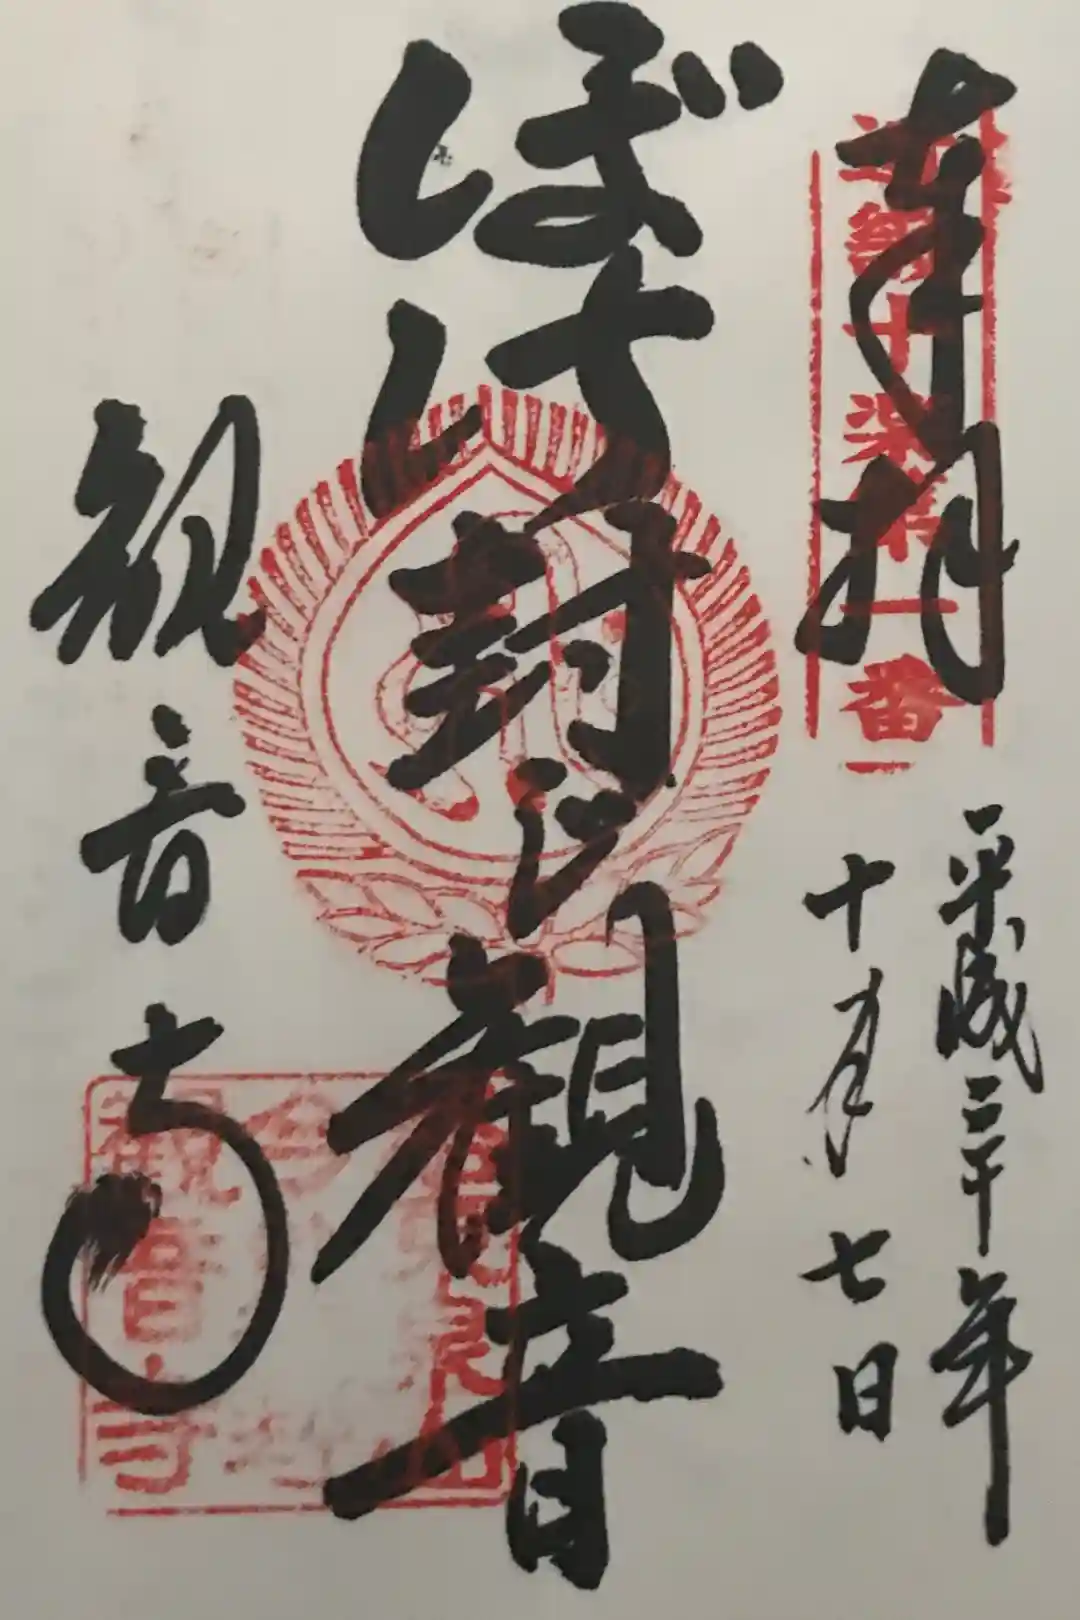 奉拝
近畿十楽第一番
平成三十年
十月七日
ぼけ封じ観音
観音寺
観音寺